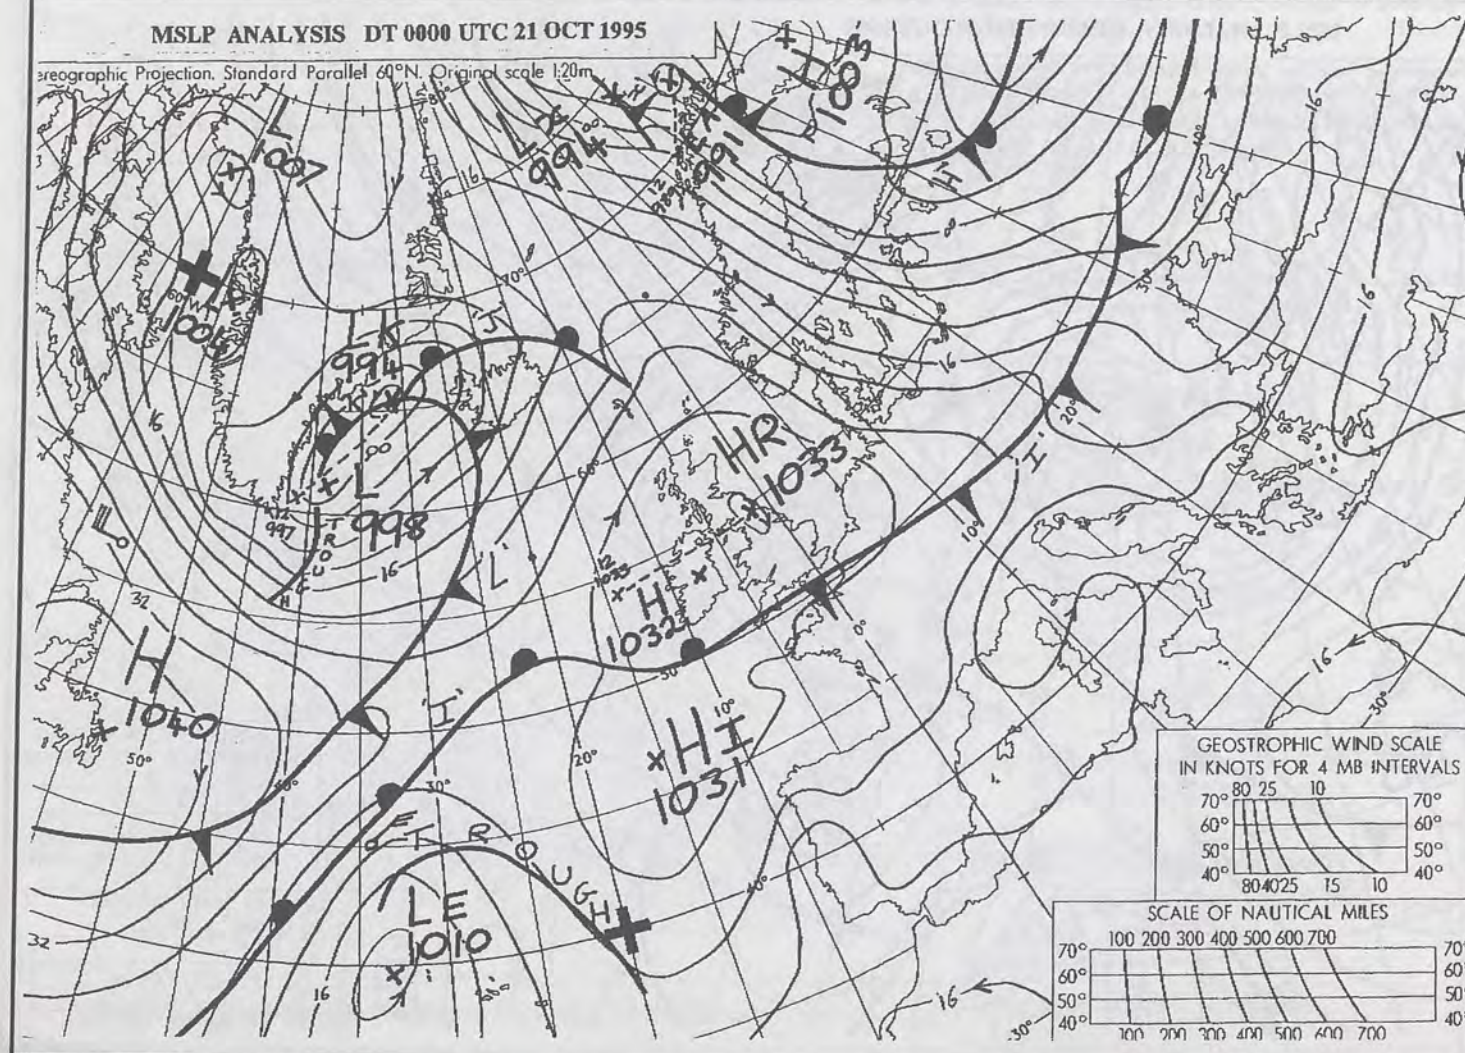 MSLP ANALYSIS DT 0000 UTC 21 OCT 1995
ereographic Projection, Standard Parallel 60°N. Original scale 1:20m
L
1007
L X
994
991
1004
L K
994
'J'
L
998
TROUGH
12
997
16
16
16
'L'
32
H
1040
50°
40°
'I'
30°
20°
10°
0°
HR
1033
12
1033
H
1032
50
HI
1031
'I'
20°
10°
30°
60°
70°
16
8
16
16
16
TROUGH
LE
1010
32
16
40°
16
30°
30°
GEOSTROPHIC WIND SCALE
IN KNOTS FOR 4 MB INTERVALS
80 25 10
70° 70°
60° 60°
50° 50°
40° 40°
80 40 25 15 10
SCALE OF NAUTICAL MILES
100 200 300 400 500 600 700
70° 70°
60° 60°
50° 50°
40° 40°
100 200 300 400 500 600 700